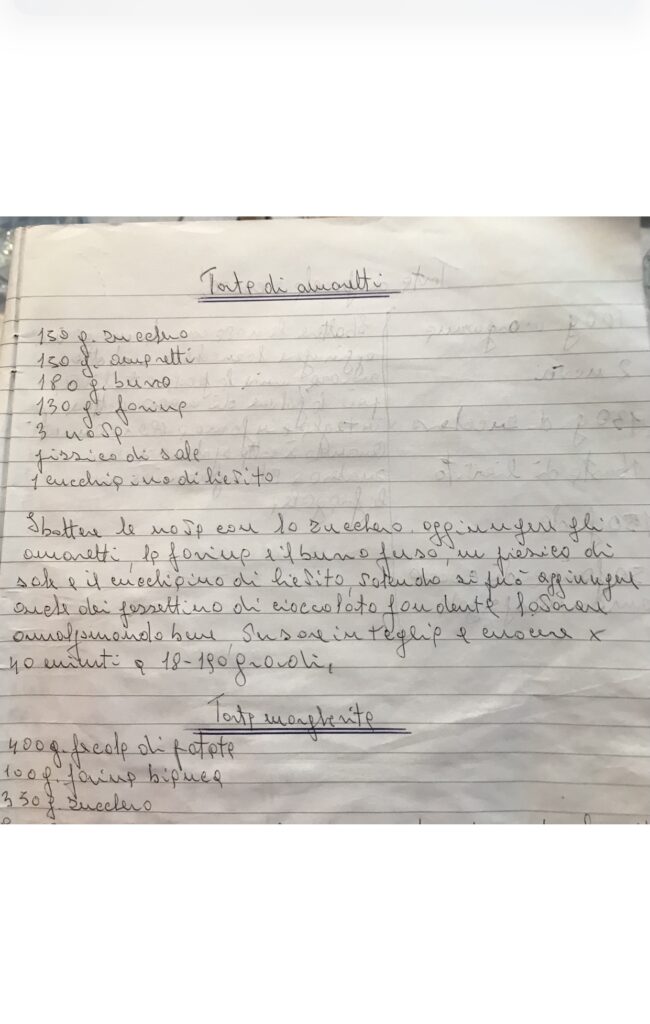 Torta di amaretti
150 g. zucchero
150 g. amaretti
180 g. burro
130 g. farina
3 uova
pizzico di sale
1 cucchiaino di lievito
Sbattere le uova con lo zucchero, aggiungere gli
amaretti, la farina e il burro fuso, un pizzico di
sale e il cucchiaino di lievito, volendo si può aggiungere
anche dei pezzettino di cioccolato fondente, lavorare
amalgamando bene, Versare in teglia e cuocere x
40 minuti a 18-190 gradi,
Torta margherita
400 g. fecola di patate
100 g. farina bianca
350 g. zucchero